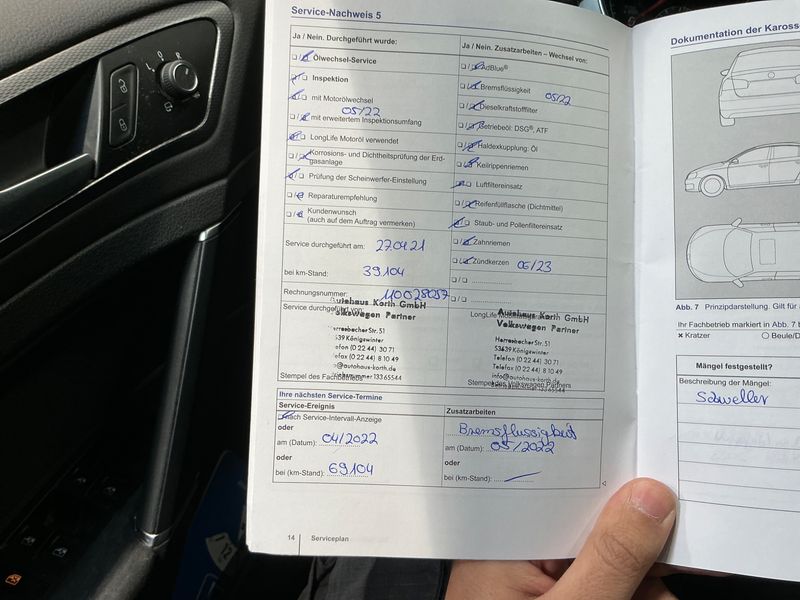 Service-Nachweis 5
Ja / Nein. Durchgeführt wurde:
Ölwechsel-Service
Inspektion
mit Motorölwechsel
05/22
mit erweitertem Inspektionsumfang
LongLife Motoröl verwendet
Korrosions- und Dichtheitsprüfung der Erd-
gasanlage
Prüfung der Scheinwerfer-Einstellung
Reparaturempfehlung
Kundenwunsch
(auch auf dem Auftrag vermerken)
Service durchgeführt am: 27.04.21
bei km-Stand: 39104
Rechnungsnummer:
Service durchgeführt von:
Autohaus Korth GmbH
Volkswagen Partner
Herresbacher Str. 51
53639 Königswinter
Telefon (0 22 44) 30 71
Telefax (0 22 44) 8 10 49
@autohaus-korth.de
Stempel des Fachbetriebs
Ja / Nein. Zusatzarbeiten – Wechsel von:
AdBlue®
Bremsflüssigkeit 05/22
Dieselkraftstofffilter
Betriebeöl: DSG®, ATF
Haldexkupplung: Öl
Keilrippenriemen
Luftfiltereinsatz
Reifenfüllflasche (Dichtmittel)
Staub- und Pollenfiltereinsatz
Zahnriemen
Zündkerzen 05/23
LongLife
Autohaus Korth GmbH
Volkswagen Partner
Herresbacher Str. 51
53639 Königswinter
Telefon (0 22 44) 30 71
Telefax (0 22 44) 8 10 49
info@autohaus-korth.de
Stempel des Volkswagen Partners
Ihre nächsten Service-Termine
Service-Ereignis
nach Service-Intervall-Anzeige
oder
am (Datum): 04/2022
oder
bei (km-Stand): 69104
Zusatzarbeiten
Bremsflüssigkeit
am (Datum): 05/2022
oder
bei (km-Stand):
14 Serviceplan
Dokumentation der Kaross
Abb. 7 Prinzipdarstellung. Gilt für
Ihr Fachbetrieb markiert in Abb. 7
× Kratzer
Beule/D
Mängel festgestellt?
Beschreibung der Mängel:
Schweller